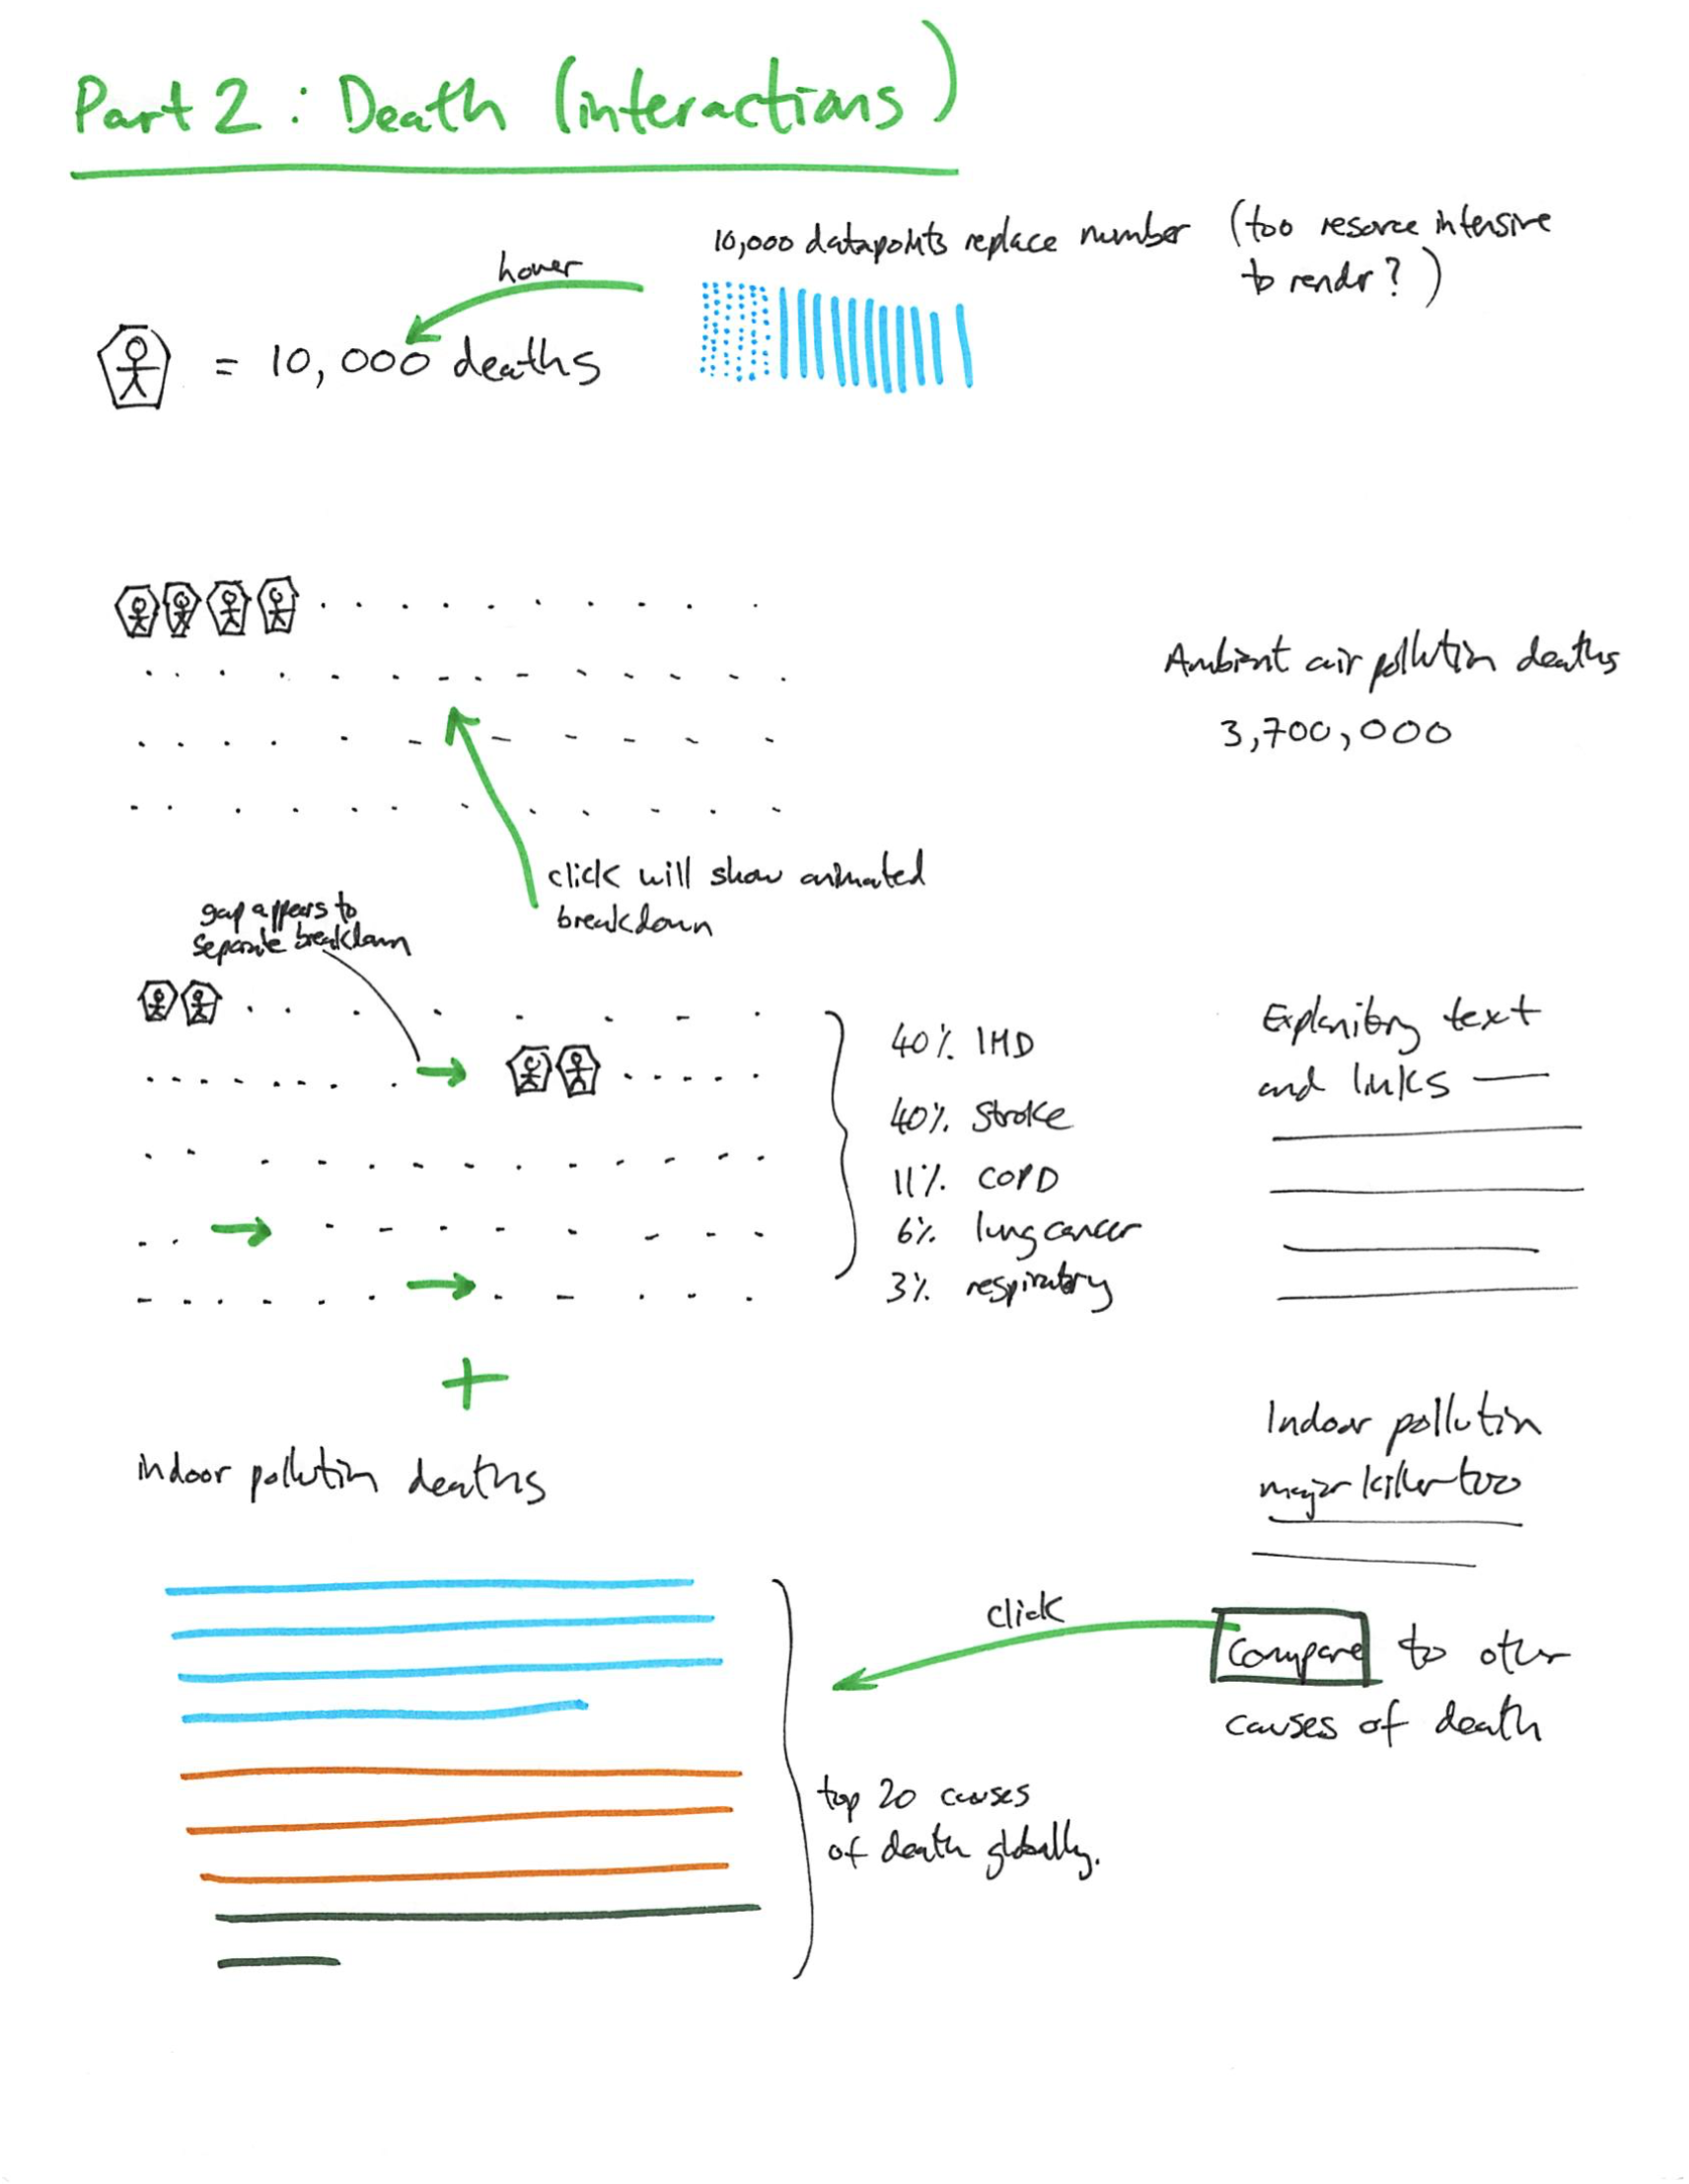 Part 2 : Death (interactions)
10,000 datapoints replace number (too resource intensive
to render?)
hover
= 10,000 deaths
Ambient air pollution deaths
3,700,000
click will show animated
breakdown
gap appears to
separate breakdown
40% IHD
40% Stroke
11% COPD
6% lung cancer
3% respiratory
Explanitory text
and links
+
indoor pollution deaths
Indoor pollution
major killer too
click
Compare to other
causes of death
top 20 causes
of death globally.